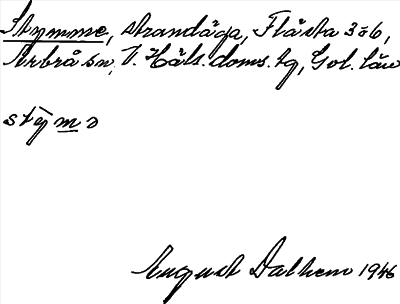 Stymme, strandäga, Flästa 3 o 6,
Arbrå sn, V. Häls. doms. tg, Gvl. län
stȳmə
August Dalhem 1946